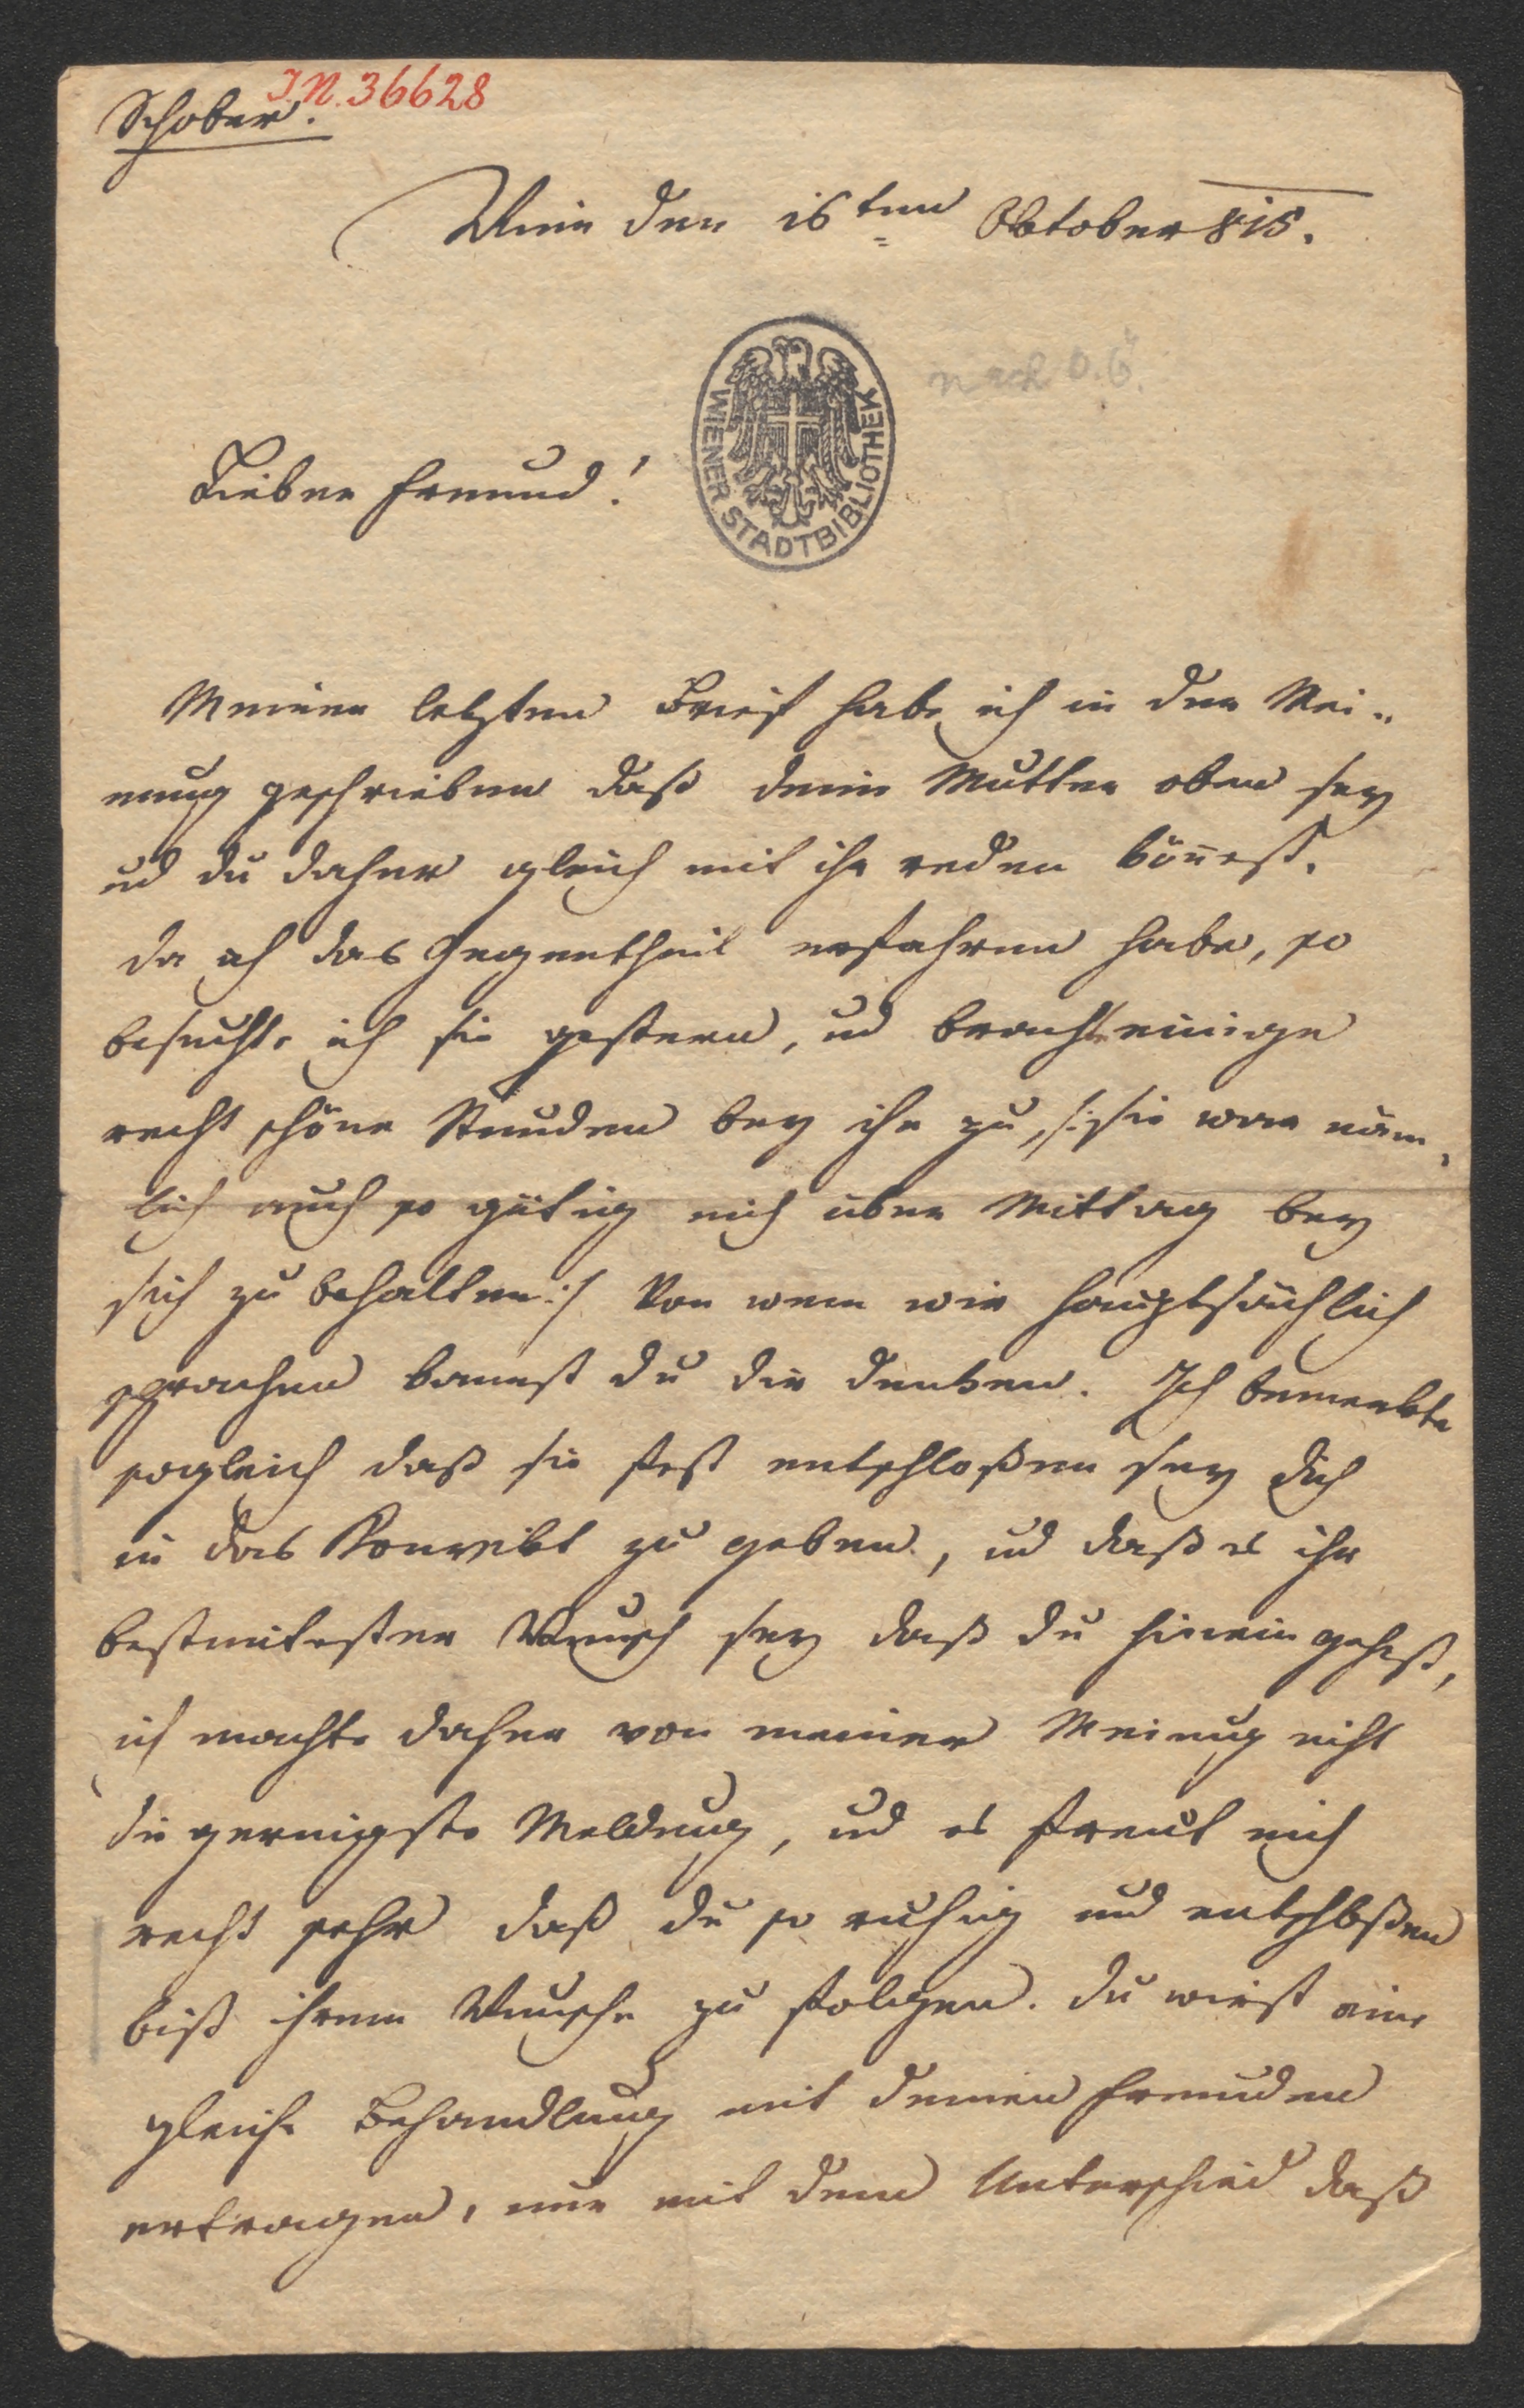 I.N. 36628
Schober.
Wien den 16ten Oktober 815.
nach O.Ö.
WIENER STADTBIBLIOTHEK
Lieber Freund!
Meinen letzten Brief habe ich in der Mei-
nung geschrieben daß deine Mutter oben sey
ud du daher gleich mit ihr reden könest.
da ich das Gegentheil erfahren habe, so
besuchte ich sie gestern, ud brachte einige
recht schöne Stunden bey ihr zu, /: sie war näm-
lich auch so gütig mich über Mittag bey
sich zu behalten :/ Von wem wir hauptsächlich
sprachen kannst du dir denken. Ich bemerkte
sogleich daß sie fest entschloßen sey dich
in das Konvikt zu geben, ud daß es ihr
bestimtester Wunsch sey daß du hinein gehest,
ich machte daher von meiner Meinug nicht
die geringste Meldung, ud es freut mich
recht sehr daß du so ruhig und entschloßen
bist ihrem Wunsche zu folgen. du wirst eine
gleiche Behandlung mit deinen Freunden
ertragen, nur mit dem Unterschied daß